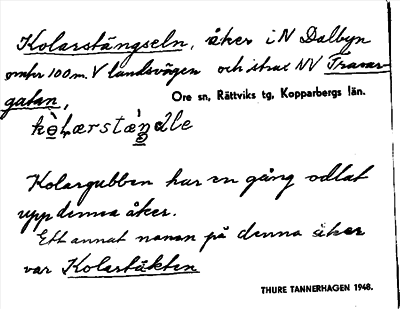 Kolarstängseln, åker i N Dalbyn
omkr 100 m. V landsvägen och strax NV Travar-
gatan,
Ore sn, Rättviks tg, Kopparbergs län.
Kolargubben har en gång odlat
upp denna åker.
Ett annat namn på denna åker
var Kolartäkten
THURE TANNERHAGEN 1948.